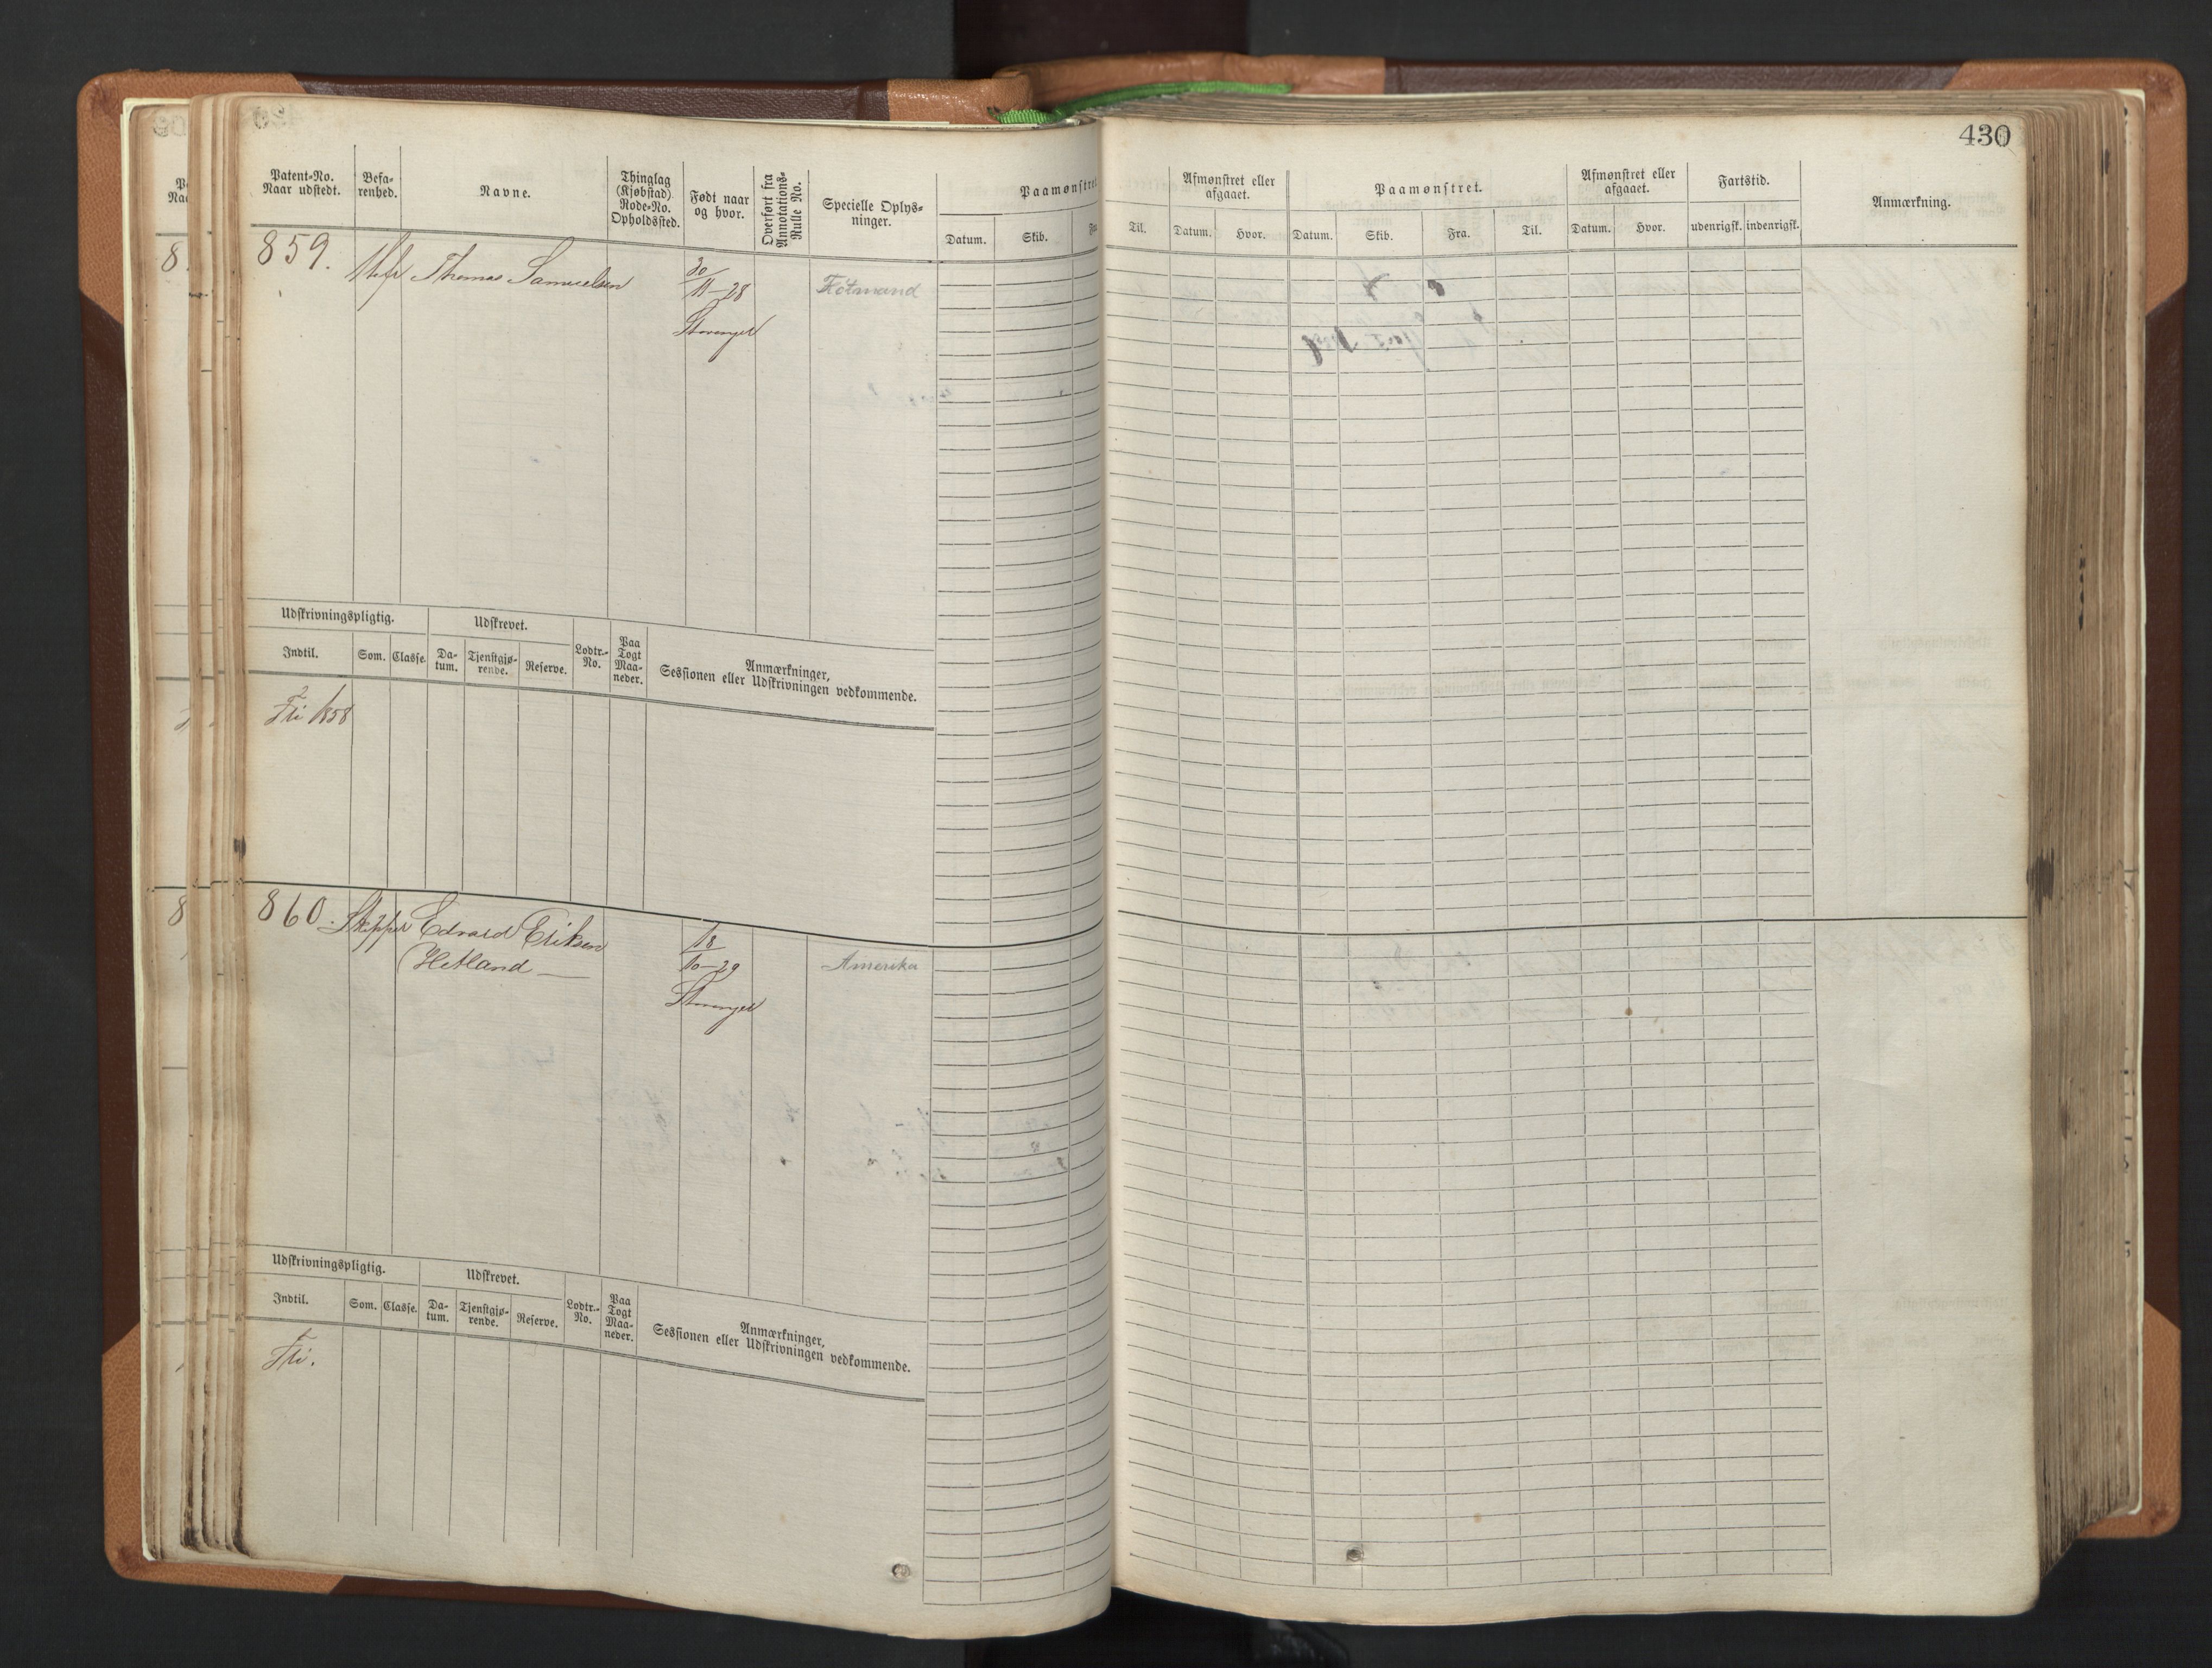 430
Patent-No.
Naar udstedt.
Befa-
renhed.
Navne.
Thinglag
(Kjøbstad).
Rode-No.
Opholdssted.
Født naar
og hvor.
Overført fra
Annotations-
Rulle No.
Specielle Oplys-
ninger.
Paamønstret.
Datum.
Skib.
Fra
Til.
Afmønstret eller
afgaaet.
Datum.
Hvor.
Paamønstret.
Datum.
Skib.
Fra.
Til.
Afmønstret eller
afgaaet.
Datum.
Hvor.
Fartstid.
udenrigsk.
indenrigsk.
Anmærkning.
859.
Thomas Samuelsen
30
11-28
Stavanger
Udskrivningspligtig.
Indtil.
Som.
Classe.
Udskrevet.
Da-
tum.
Tjenstgjø-
rende.
Reserve.
Lodtr.-
No.
Paa
Togt
Maa-
neder.
Anmærkninger,
Sessionen eller Udskrivningen vedkommende.
Fri 1858
860.
Skipper
Edvard Eriksen
Hetland
18
10-29
Stavanger
Amerika
Udskrivningspligtig.
Indtil.
Som.
Classe.
Udskrevet.
Da-
tum.
Tjenstgjø-
rende.
Reserve.
Lodtr.-
No.
Paa
Togt
Maa-
neder.
Anmærkninger,
Sessionen eller Udskrivningen vedkommende.
Fri.